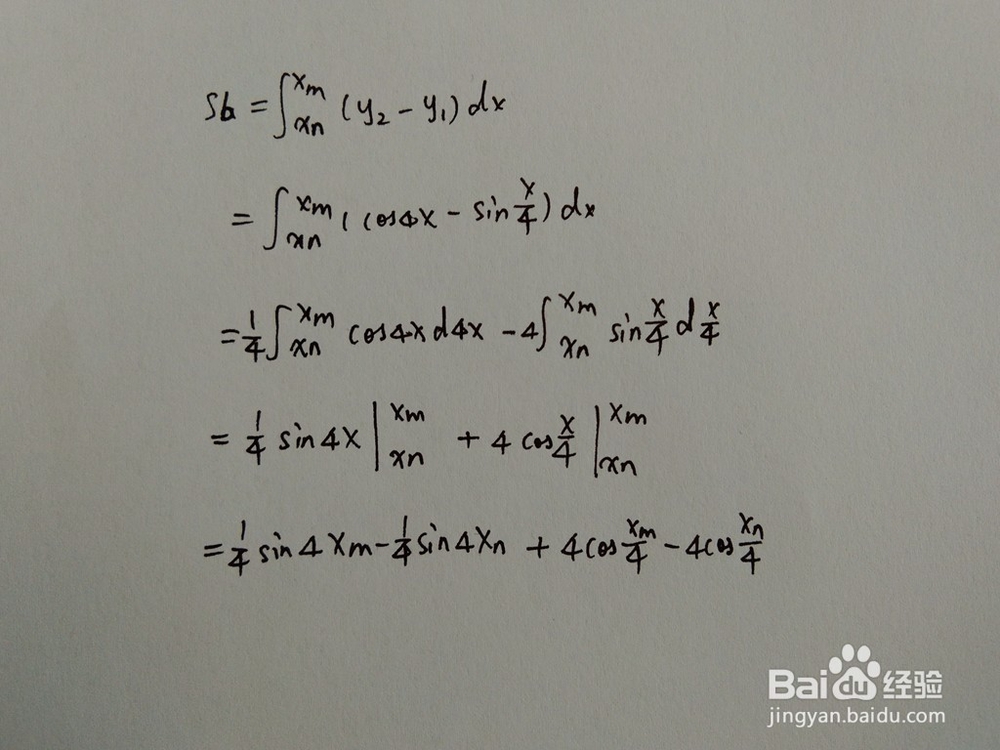 S6 = ∫_{xn}^{xm} (y₂ - y₁) dx
= ∫_{xn}^{xm} (cos4x - sin x/4) dx
= 1/4 ∫_{xn}^{xm} cos4x d4x - 4∫_{xn}^{xm} sin x/4 d x/4
= 1/4 sin 4x |_{xn}^{xm} + 4 cos x/4 |_{xn}^{xm}
= 1/4 sin 4xm - 1/4 sin 4xn + 4cos xm/4 - 4cos xn/4
Baidu 经验
jingyan.baidu.com